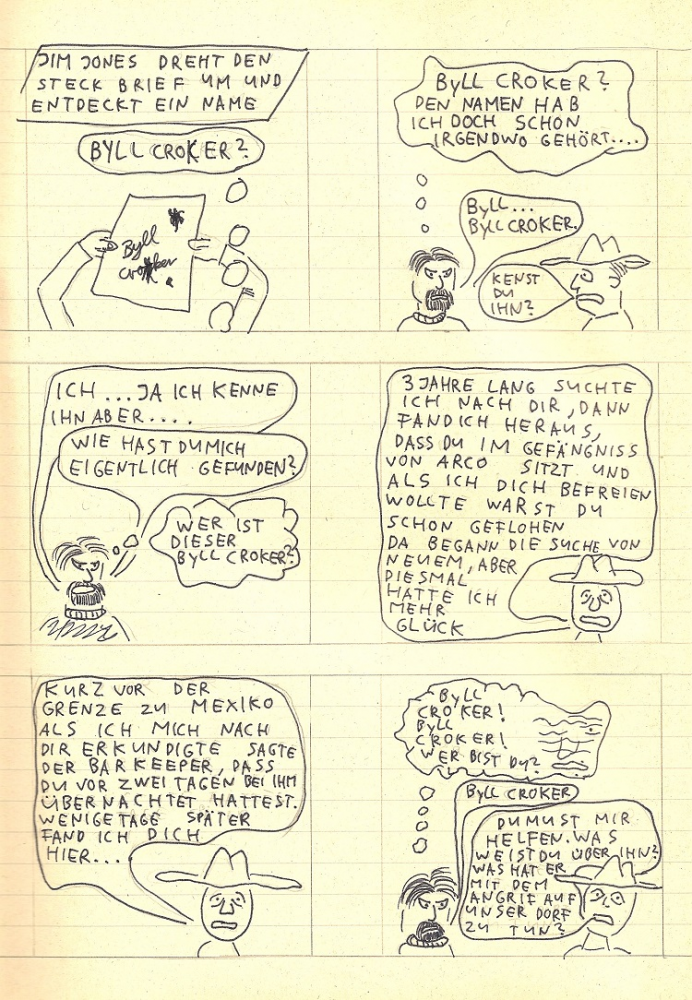 JIM JONES DREHT DEN
STECK BRIEF UM UND
ENTDECKT EIN NAME
BYLL CROKER?
Byll
Croker
ByLL CROKER?
DEN NAMEN HAB
ICH DOCH SCHON
IRGENDWO GEHÖRT....
ByLL...
ByLL CROKER.
KENST
DU
IHN?
ICH...JA ICH KENNE
IHN ABER....
WIE HAST DU MICH
EIGENTLICH GEFUNDEN?
WER IST
DIESER
BYLL CROKER?
3 JAHRE LANG SUCHTE
ICH NACH DIR, DANN
FAND ICH HERAUS,
DASS DU IM GEFÄNGNISS
VON ARCO SITZT UND
ALS ICH DICH BEFREIEN
WOLLTE WARST DU
SCHON GEFLOHEN
DA BEGANN DIE SUCHE VON
NEUEM, ABER
DIESMAL
HATTE ICH
MEHR
GLÜCK
KURZ VOR DER
GRENZE ZU MEXIKO
ALS ICH MICH NACH
DIR ERKUNDIGTE SAGTE
DER BARKEEPER, DASS
DU VOR ZWEI TAGEN BEI IHM
ÜBERNACHTET HATTEST.
WENIGE TAGE SPÄTER
FAND ICH DICH
HIER...
ByLL
CROKER!
ByLL
CROKER!
WER BIST DU?
ByLL CROKER
DU MUST MIR
HELFEN. WAS
WEIST DU ÜBER IHN?
WAS HAT ER
MIT DEM
ANGRIF AUF
UNSER DORF
ZU TUN?